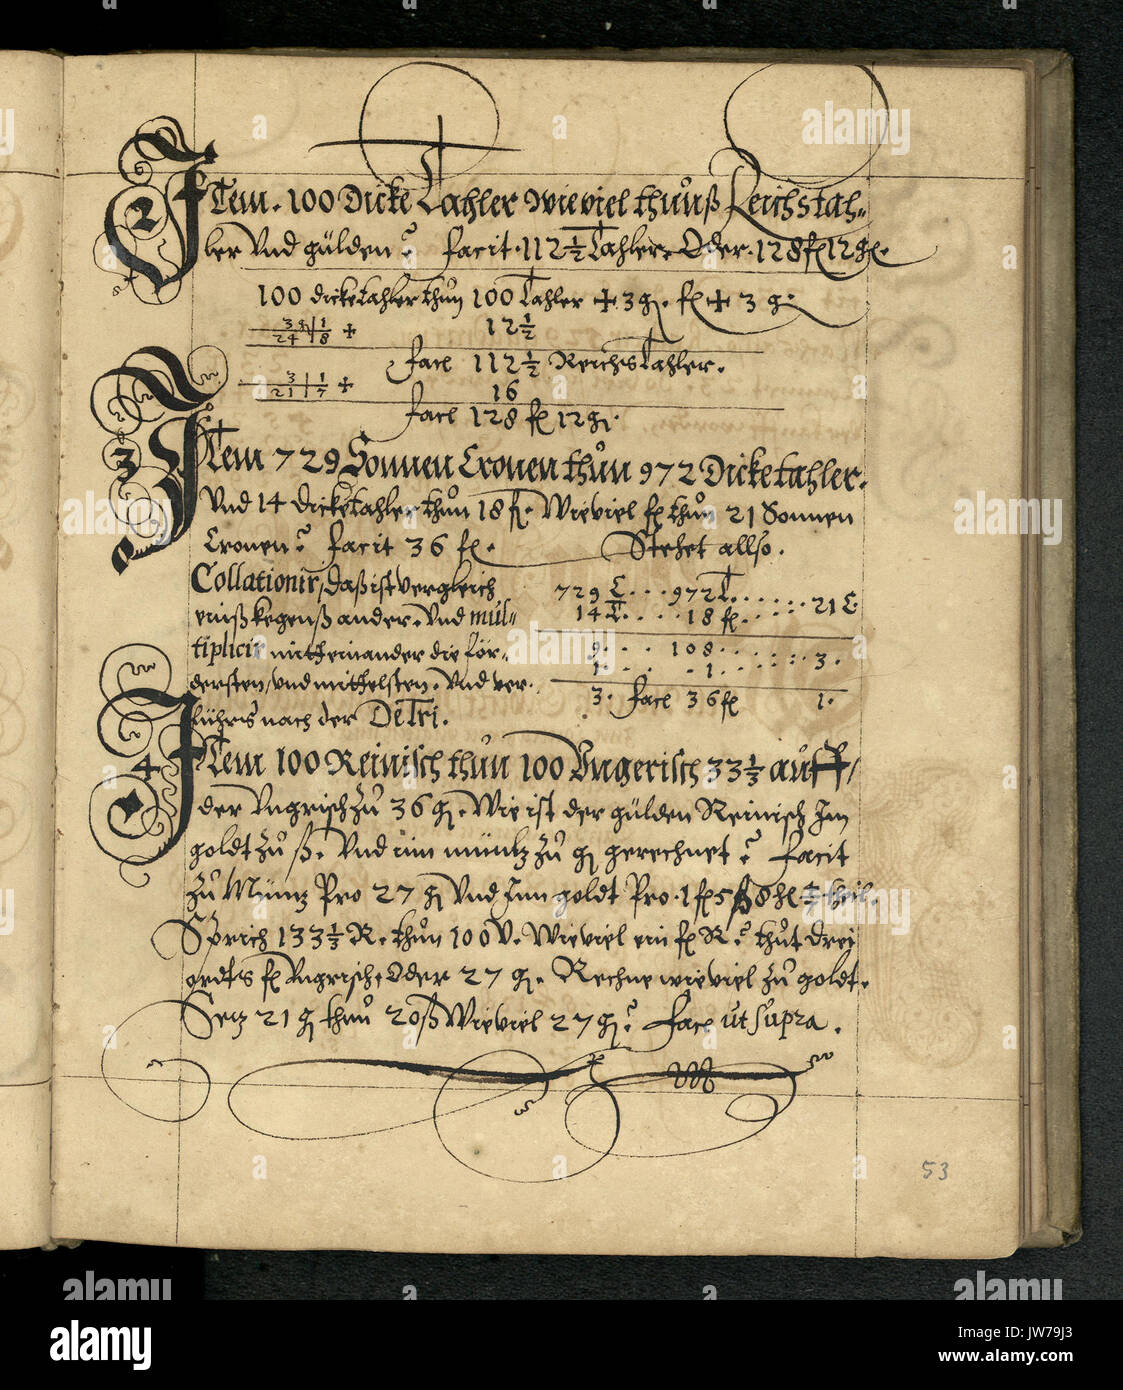 2 ITem. 100 Dicke Tahler wieviel thuůß Reichstah=
ler Vnd gülden? facit. 112 1/2 Tahler. Oder. 128 fl 12 gl.
100 dicketahler thůn 100 Tahler + 3 gl. fl + 3 g.
3 | 1
24 | 8 + 12 1/2
facl 112 1/2 Reichs Tahler.
3 | 1
21 | 7 + 16
facl 128 fl 12 gl.
3 ITem 729 Sonnen Cronen thůn 972 Dicketahler.
Vnd 14 dicketahler thůn 18 fl. Wieviel fl thůn 21 Sonnen
Cronen? facit 36 fl. Stehet allso.
Collationir, daß ist vergleich
einß kegenß ander. Vnd mul=
tiplicir mitheinander die för=
dersten, vnd mittelsten. Vnd ver.
führs nach der DeTri.
729 C... 972 T...... 21 C.
14 T.... 18 fl.
9... 108...... 3.
1... 1.
3. facl 36 fl 1.
4 ITem 100 Reinisch thůn 100 Vngerisch 33 1/3 auff,
der Vngrisch zů 36 gl. Wie ist der gülden Reinisch Im
goldt zů ß. Vnd inn müntz zů gl gerechnet? facit
zů Müntz Pro 27 gl Vnd Inn goldt Pro. 1 fl 5 ß 8 hl 4/7 theil.
Sprich 133 1/3 R. thůn 100 V. Wieviel ein fl R.? thůt drei
ordts fl Vngrisch, Oder 27 gl. Rechne wieviel zů goldt.
Setz 21 gl thun 20 ß Wieviel 27 gl? facl ut supra.
53
alamy
alamy
Image ID: JW79J3
www.alamy.com